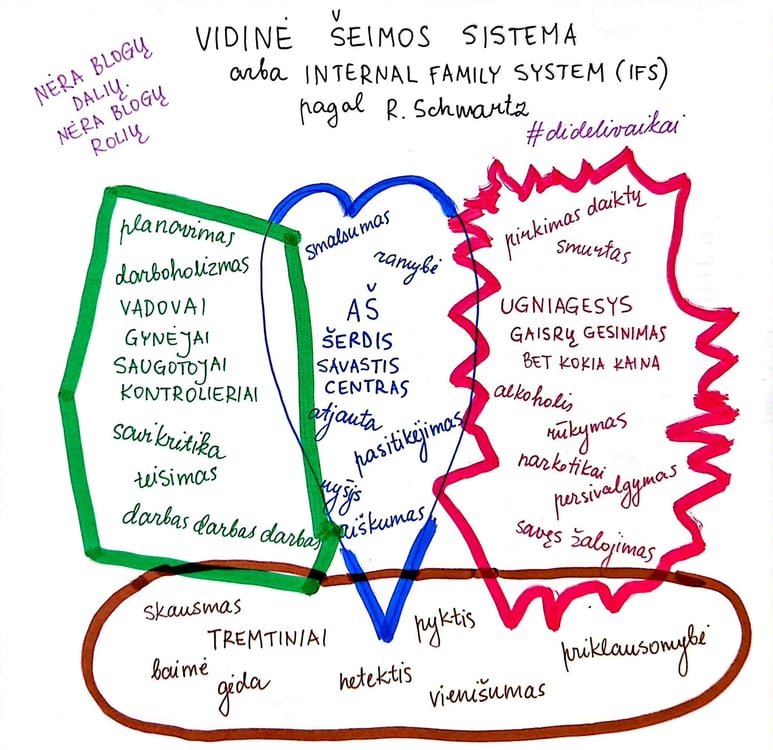 VIDINĖ ŠEIMOS SISTEMA
arba INTERNAL FAMILY SYSTEM (IFS)
pagal R. Schwartz
NĖRA BLOGŲ
DALIŲ.
NĖRA BLOGŲ
ROLIŲ
#didelivaikai
planavimas
darboholizmas
VADOVAI
GYNĖJAI
SAUGOTOJAI
KONTROLIERIAI
savikritika
teisimas
darbas darbas darbas
smalsumas
ramybė
AŠ
ŠERDIS
SAVASTIS
CENTRAS
atjauta
pasitikėjimas
ryšys
aiškumas
pirkimas daiktų
smurtas
UGNIAGESYS
GAISRŲ GESINIMAS
BET KOKIA KAINA
alkoholis
rūkymas
narkotikai
persivalgymas
savęs žalojimas
skausmas
TREMTINIAI
baimė
gėda
netektis
pyktis
vienišumas
priklausomybė